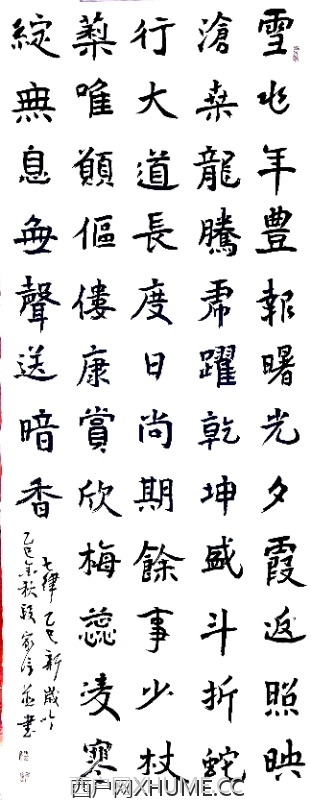 雪兆年豐報曙光夕霞返照映
滄桒龍騰虎躍乾坤盛斗折蛇
行大道長度日尚期餘事少杖
藜唯願傴僂康賞欣梅蕊凌寒
綻無息無聲送暗香
七律 乙巳新歲吟
乙巳年秋段家信並書
西户网XHUME.CC